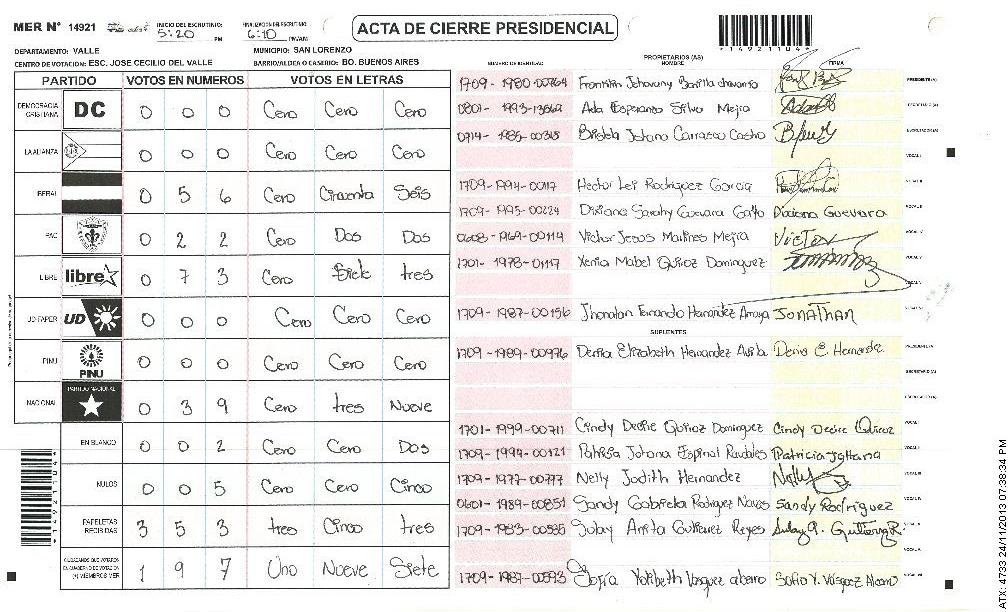 MER N° 14921 INICIO DEL ESCRUTINIO: 5:20 PM FINALIZACION DEL ESCRUTINIO: 6:10 PM/AM
ACTA DE CIERRE PRESIDENCIAL
*14921104*
DEPARTAMENTO: VALLE MUNICIPIO: SAN LORENZO
CENTRO DE VOTACION: ESC. JOSE CECILIO DEL VALLE BARRIO/ALDEA O CASERIO: BO. BUENOS AIRES
PARTIDO VOTOS EN NUMEROS VOTOS EN LETRAS
DEMOCRACIA CRISTIANA DC 0 0 0 Cero Cero Cero
LA ALIANZA 0 0 0 Cero Cero Cero
BERAL 0 5 6 Cero Cincuenta Seis
PAC 0 2 2 Cero Dos Dos
LIBRE libre 0 7 3 Cero Siete tres
UD-FAPER UD 0 0 0 Cero Cero Cero
PINU PINU 0 0 0 Cero Cero Cero
NACIONAL PARTIDO NACIONAL 0 3 9 Cero tres Nueve
EN BLANCO 0 0 2 Cero Cero Dos
NULOS 0 0 5 Cero Cero Cinco
PAPELETAS RECIBIDAS 3 5 3 tres Cinco tres
CIUDADANOS QUE VOTARON 1 9 7 Uno Nueve Siete
(+) MIEMBROS MER
PROPIETARIOS (AS)
NUMERO DE IDENTIDAD NOMBRE FIRMA
1709-1980-00764 Franklin Jehovany Bonilla PRESIDENTE (A)
0801-1993-13669 Ada Esperanza Silva Mejia SECRETARIO (A)
0714-1985-00318 Johana Carrasco Castro
VOCAL I
1709-1994-00117 Hector Lei Rodriguez Garcia
1709-1995-00224 Dixiana Sarahy Guevara Dixiana Guevara
0608-1969-00114 Victor Jesus Martines Mejia VICTOR
1701-1978-01117 Xenia Mabel Quiroz Dominguez
1709-1987-00156 Jhonatan Fernando Hernandez Amaya JONATHAN
SUPLENTES
1709-1989-00976 Denia Elizabeth Hernandez Avila Denia E. Hernandez
SECRETARIO (A)
1701-1999-00711 Cindy Desire Quiroz Dominguez Cindy Desire Quiroz
1709-1994-00121 Patricia Johana Espinal Raudales Patricia Johana
1709-1977-00777 Nelly Judith Hernandez Nelly
0601-1989-00851 Sandy Gabriela Rodriguez Sandy Rodriguez
1709-1983-00585 Suby Anita Gutierrez Reyes Gutierrez R.
1709-1987-00593 Sofia Yolibeth Vasquez Sofia Y. Vásquez
*14921104*
ATX: 4733 24/11/2013 07:38:34 PM